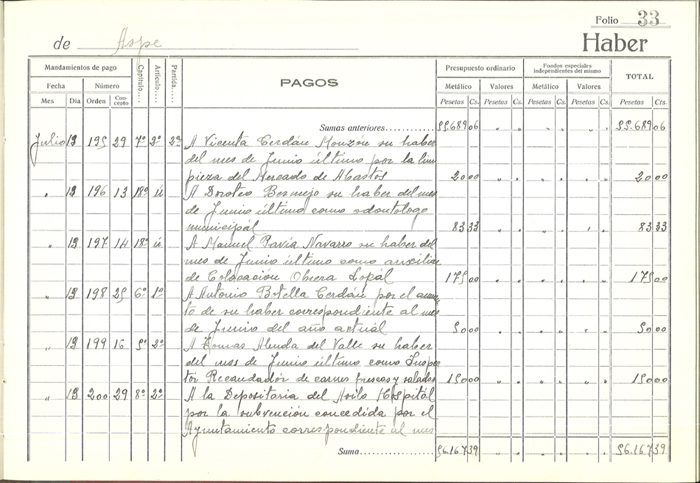 Folio 33
de Aspe Haber
Mandamientos de pago Capítulo Artículo Partida PAGOS Presupuesto ordinario Fondos especiales independientes del mismo TOTAL
Fecha Número Metálico Valores Metálico Valores
Mes Día Orden Concepto Pesetas Cs. Pesetas Cs. Pesetas Cs. Pesetas Cs. Pesetas Cts.
Sumas anteriores 55.689 06 55.689 06
Julio 13 195 29 7º 3º 2ª A Vicenta Cerdán Monzón su haber
del mes de Junio último por la lim
pieza del Mercado de Abastos 20 00 20 00
" 13 196 13 18º ú A Doroteo Bermejo su haber del mes
de Junio último como odontologo
municipál 83 33 83 33
" 13 197 14 18º ú A Manuel Pavía Navarro su haber del
mes de Junio último como auxiliar
de Colocación Obrera Lokál 175 00 175 00
" 13 198 25 6º 1º A Antonio Botella Cerdán por el aumen
to de su haber correspondiente al mes
de Junio del año actuál 50 00 50 00
" 13 199 16 5º 2º A Tomas Alenda del Valle su haber
del mes de Junio último como Inspec
tor Recaudadór de carnes frescas y saladas 150 00 150 00
" 13 200 29 8º 2º A la Depositaria del Asilo Hospitál
por la subvención concedida por el
Ayuntamiento correspondiente al mes
Suma 56.167 39 56.167 39